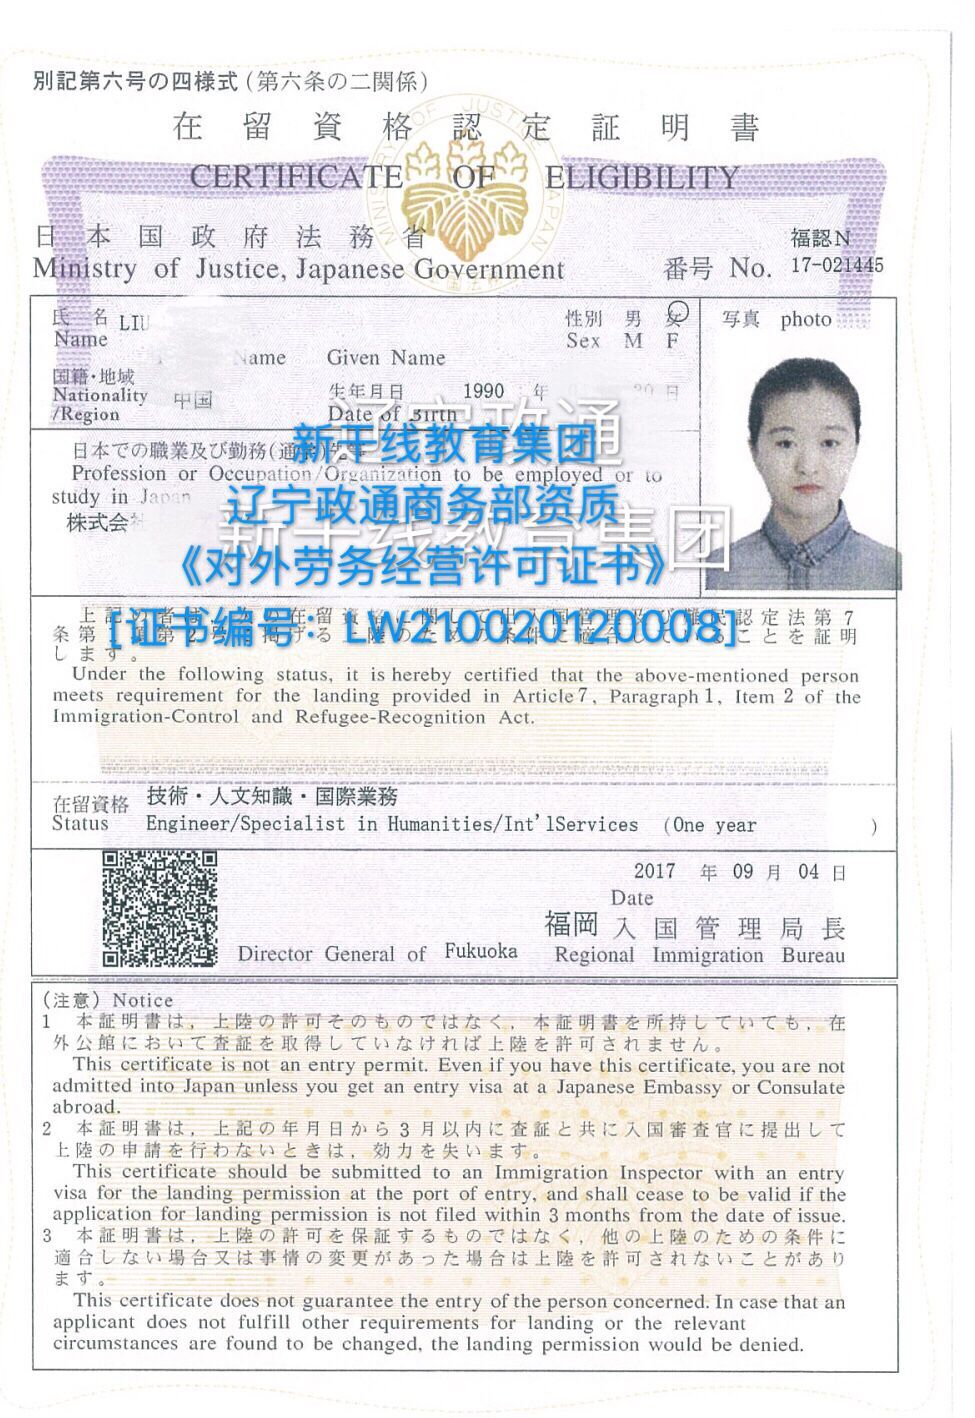 別記第六号の四様式(第六条の二関係)
在留資格認定証明書
CERTIFICATE OF ELIGIBILITY
日本国政府法務省
Ministry of Justice, Japanese Government
福認N
番号 No. 17-021445
氏名 LIU
Name
Name Given Name
性別 男 女
Sex M F
写真 photo
国籍・地域
Nationality
/Region
中国
生年月日 1990 年 日
Date of Birth
辽宁政通
新干线教育集团
日本での職業及び勤務(通学)先等
Profession or Occupation/Organization to be employed or to
study in Japan
株式会社
辽宁政通商务部资质
新干线教育集团
《对外劳务经营许可证书》
[证书编号：LW210020120008]
上記の者は、次の在留資格に関して出入国管理及び難民認定法第7
条第1項第2号に掲げる上陸のための条件に適合していることを証明
します。
Under the following status, it is hereby certified that the above-mentioned person
meets requirement for the landing provided in Article 7, Paragraph 1, Item 2 of the
Immigration-Control and Refugee-Recognition Act.
在留資格 技術・人文知識・国際業務
Status Engineer/Specialist in Humanities/Int'lServices (One year )
2017 年 09 月 04 日
Date
福岡 入国管理局長
Director General of Fukuoka Regional Immigration Bureau
(注意) Notice
1 本証明書は、上陸の許可そのものではなく、本証明書を所持していても、在
外公館において査証を取得していなければ上陸を許可されません。
This certificate is not an entry permit. Even if you have this certificate, you are not
admitted into Japan unless you get an entry visa at a Japanese Embassy or Consulate
abroad.
2 本証明書は、上記の年月日から3月以内に査証と共に入国審査官に提出して
上陸の申請を行わないときは、効力を失います。
This certificate should be submitted to an Immigration Inspector with an entry
visa for the landing permission at the port of entry, and shall cease to be valid if the
application for landing permission is not filed within 3 months from the date of issue.
3 本証明書は、上陸の許可を保証するものではなく、他の上陸のための条件に
適合しない場合又は事情の変更があった場合は上陸を許可されないことがあり
ます。
This certificate does not guarantee the entry of the person concerned. In case that an
applicant does not fulfill other requirements for landing or the relevant
circumstances are found to be changed, the landing permission would be denied.